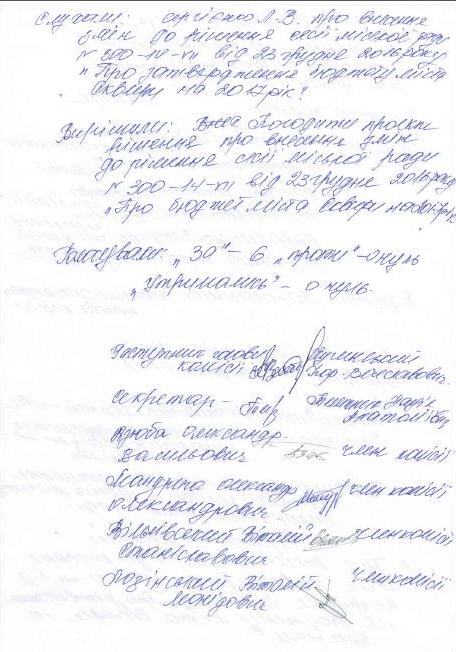 Слухали: Сергієнко Л.В. про внесення
змін до рішення сесії міської ради
№ 300-14-VII від 23 грудня 2016 року
"Про затвердження бюджету міста
Сквири на 2017 рік"
Вирішили: Погодити проєкт
рішення про внесення змін
до рішення сесії міської ради
№ 300-14-VII від 23 грудня 2016 року
"Про бюджет міста Сквири на 2017 рік
Голосували: "За" - 6 "проти" - 0 нуль
"Утримались" - 0 нуль.
Заступник голови
комісії Вячеславович.
Секретар - Надія
Анатоліївна
Дзюба Олександр
Васильович член комісії
Мандрика Олександр член комісії
Олександрович
Вільнівський Віталій член комісії
Станіславович
Лозінський Віталій член комісії
Леонідович